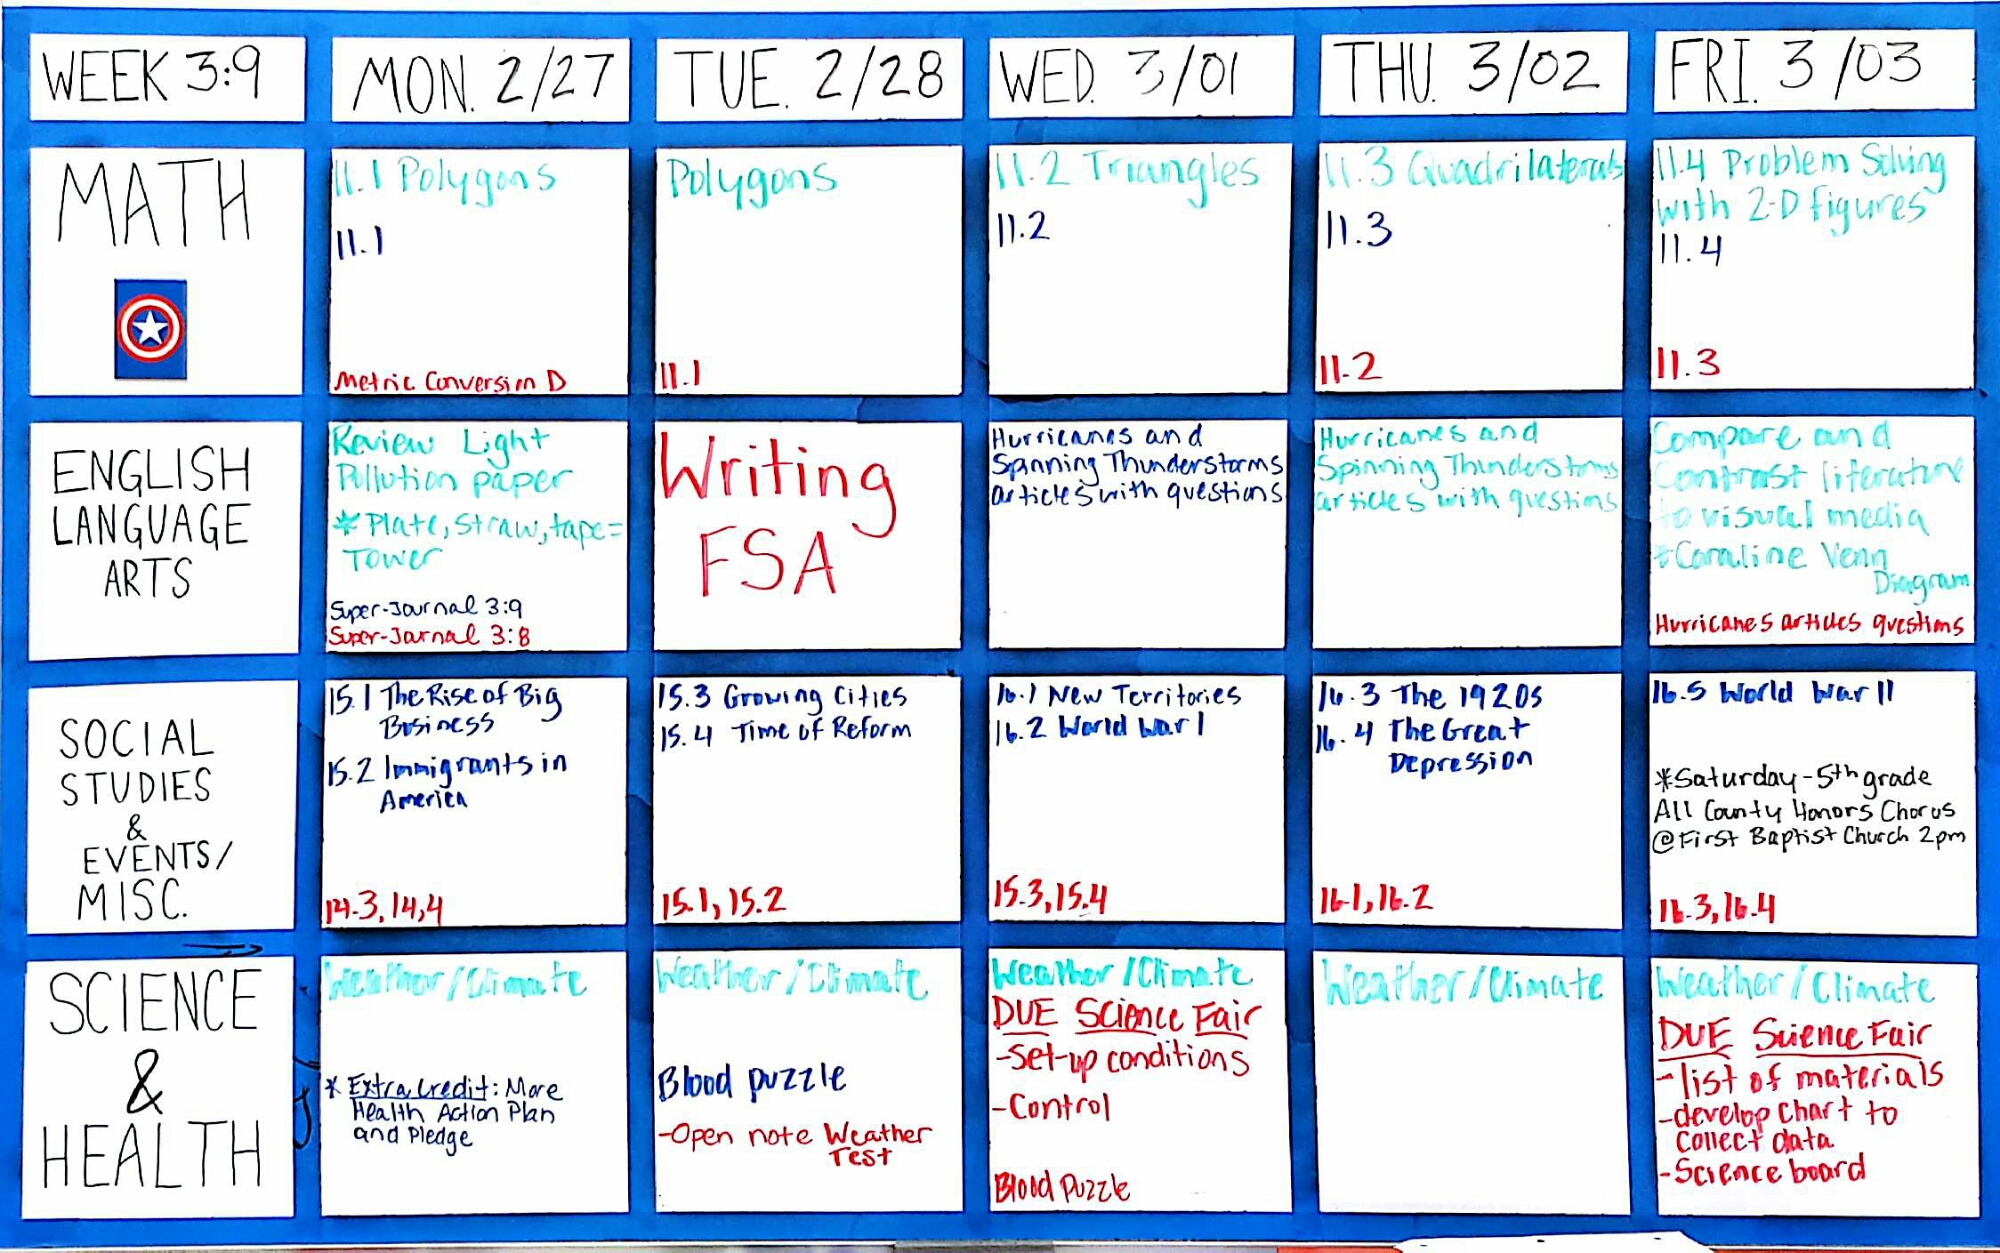 WEEK 3:9
MON. 2/27
TUE. 2/28
WED. 3/01
THU. 3/02
FRI. 3/03
MATH
11.1 Polygons
11.1
Metric Conversion D
Polygons
11.1
11.2 Triangles
11.2
11.3 Quadrilaterals
11.3
11.2
11.4 Problem Solving
with 2-D figures
11.4
11.3
ENGLISH
LANGUAGE
ARTS
Review Light
Pollution paper
*Plate, Straw, tape=
Tower
Super-Journal 3:9
Super-Journal 3:8
Writing
FSA
Hurricanes and
Spinning Thunderstorms
articles with questions
Hurricanes and
Spinning Thunderstorms
articles with questions
Compare and
Contrast literature
to visual media
*Coraline Venn
Diagram
Hurricanes articles questions
SOCIAL
STUDIES
&
EVENTS/
MISC.
15.1 The Rise of Big
Business
15.2 Immigrants in
America
14.3, 14,4
15.3 Growing Cities
15.4 Time of Reform
15.1, 15.2
16.1 New Territories
16.2 World War I
15.3, 15.4
16.3 The 1920s
16.4 The Great
Depression
16.1, 16.2
16.5 World War II
*Saturday-5th grade
All County Honors Chorus
@First Baptist Church 2pm
16.3, 16.4
SCIENCE
&
HEALTH
Weather/Climate
* Extra Credit: More
Health Action Plan
and Pledge
Weather/Climate
Blood puzzle
-Open note Weather
Test
Weather/Climate
DUE Science Fair
-set-up conditions
-Control
Blood Puzzle
Weather/Climate
Weather/Climate
DUE Science Fair
-list of materials
-develop chart to
collect data
-Science board